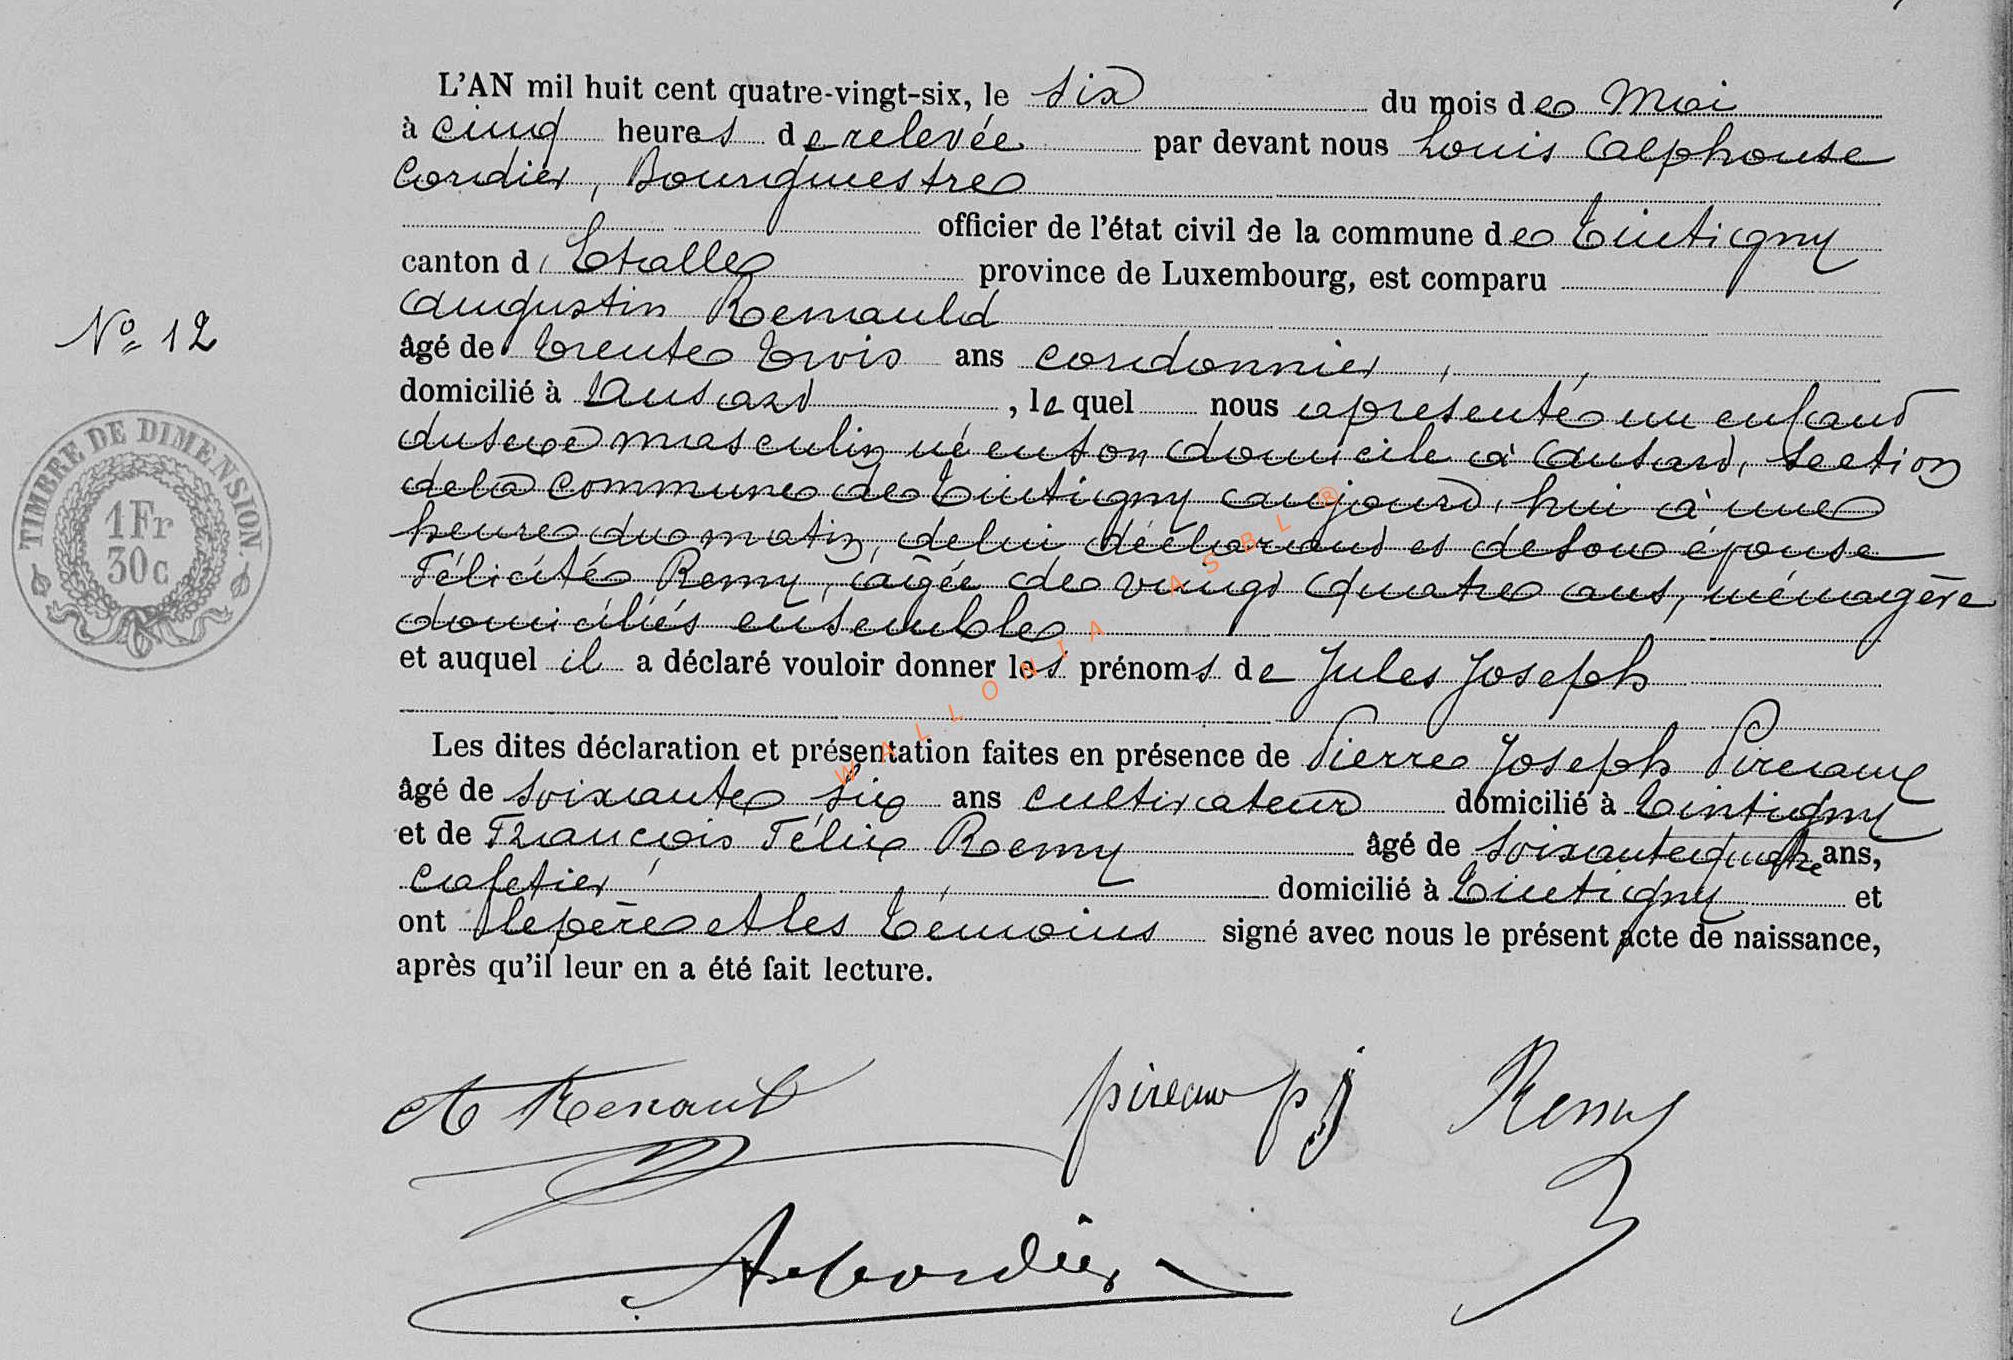 L'AN mil huit cent quatre-vingt-six, le six du mois de Mai
à cinq heures de relevée par devant nous Louis Alphonse
Cordier, Bourgmestre
officier de l'état civil de la commune de Tintigny
canton d'Etalle province de Luxembourg, est comparu
Augustin Renauld
N° 12
âgé de trente trois ans cordonnier,
domicilié à Ansart, lequel nous a présenté un enfant
du sexe masculin né en son domicile à Ansart, section
de la Commune de Tintigny aujourd'hui à une
heure du matin, de lui déclarant et de son épouse
Félicité Remy, âgée de vingt quatre ans, ménagère
domiciliés ensemble
et auquel il a déclaré vouloir donner les prénoms de Jules Joseph
Les dites déclaration et présentation faites en présence de Pierre Joseph Pireaux
âgé de soixante six ans cultivateur domicilié à Tintigny
et de François Félix Remy âgé de soixante quatre ans,
cafetier domicilié à Tintigny et
ont le père et les témoins signé avec nous le présent acte de naissance,
après qu'il leur en a été fait lecture.
TIMBRE DE DIMENSION.
1 Fr
30 c
WALLONIA ASBL ®
A Renault pireaux pj Remy
A Cordier